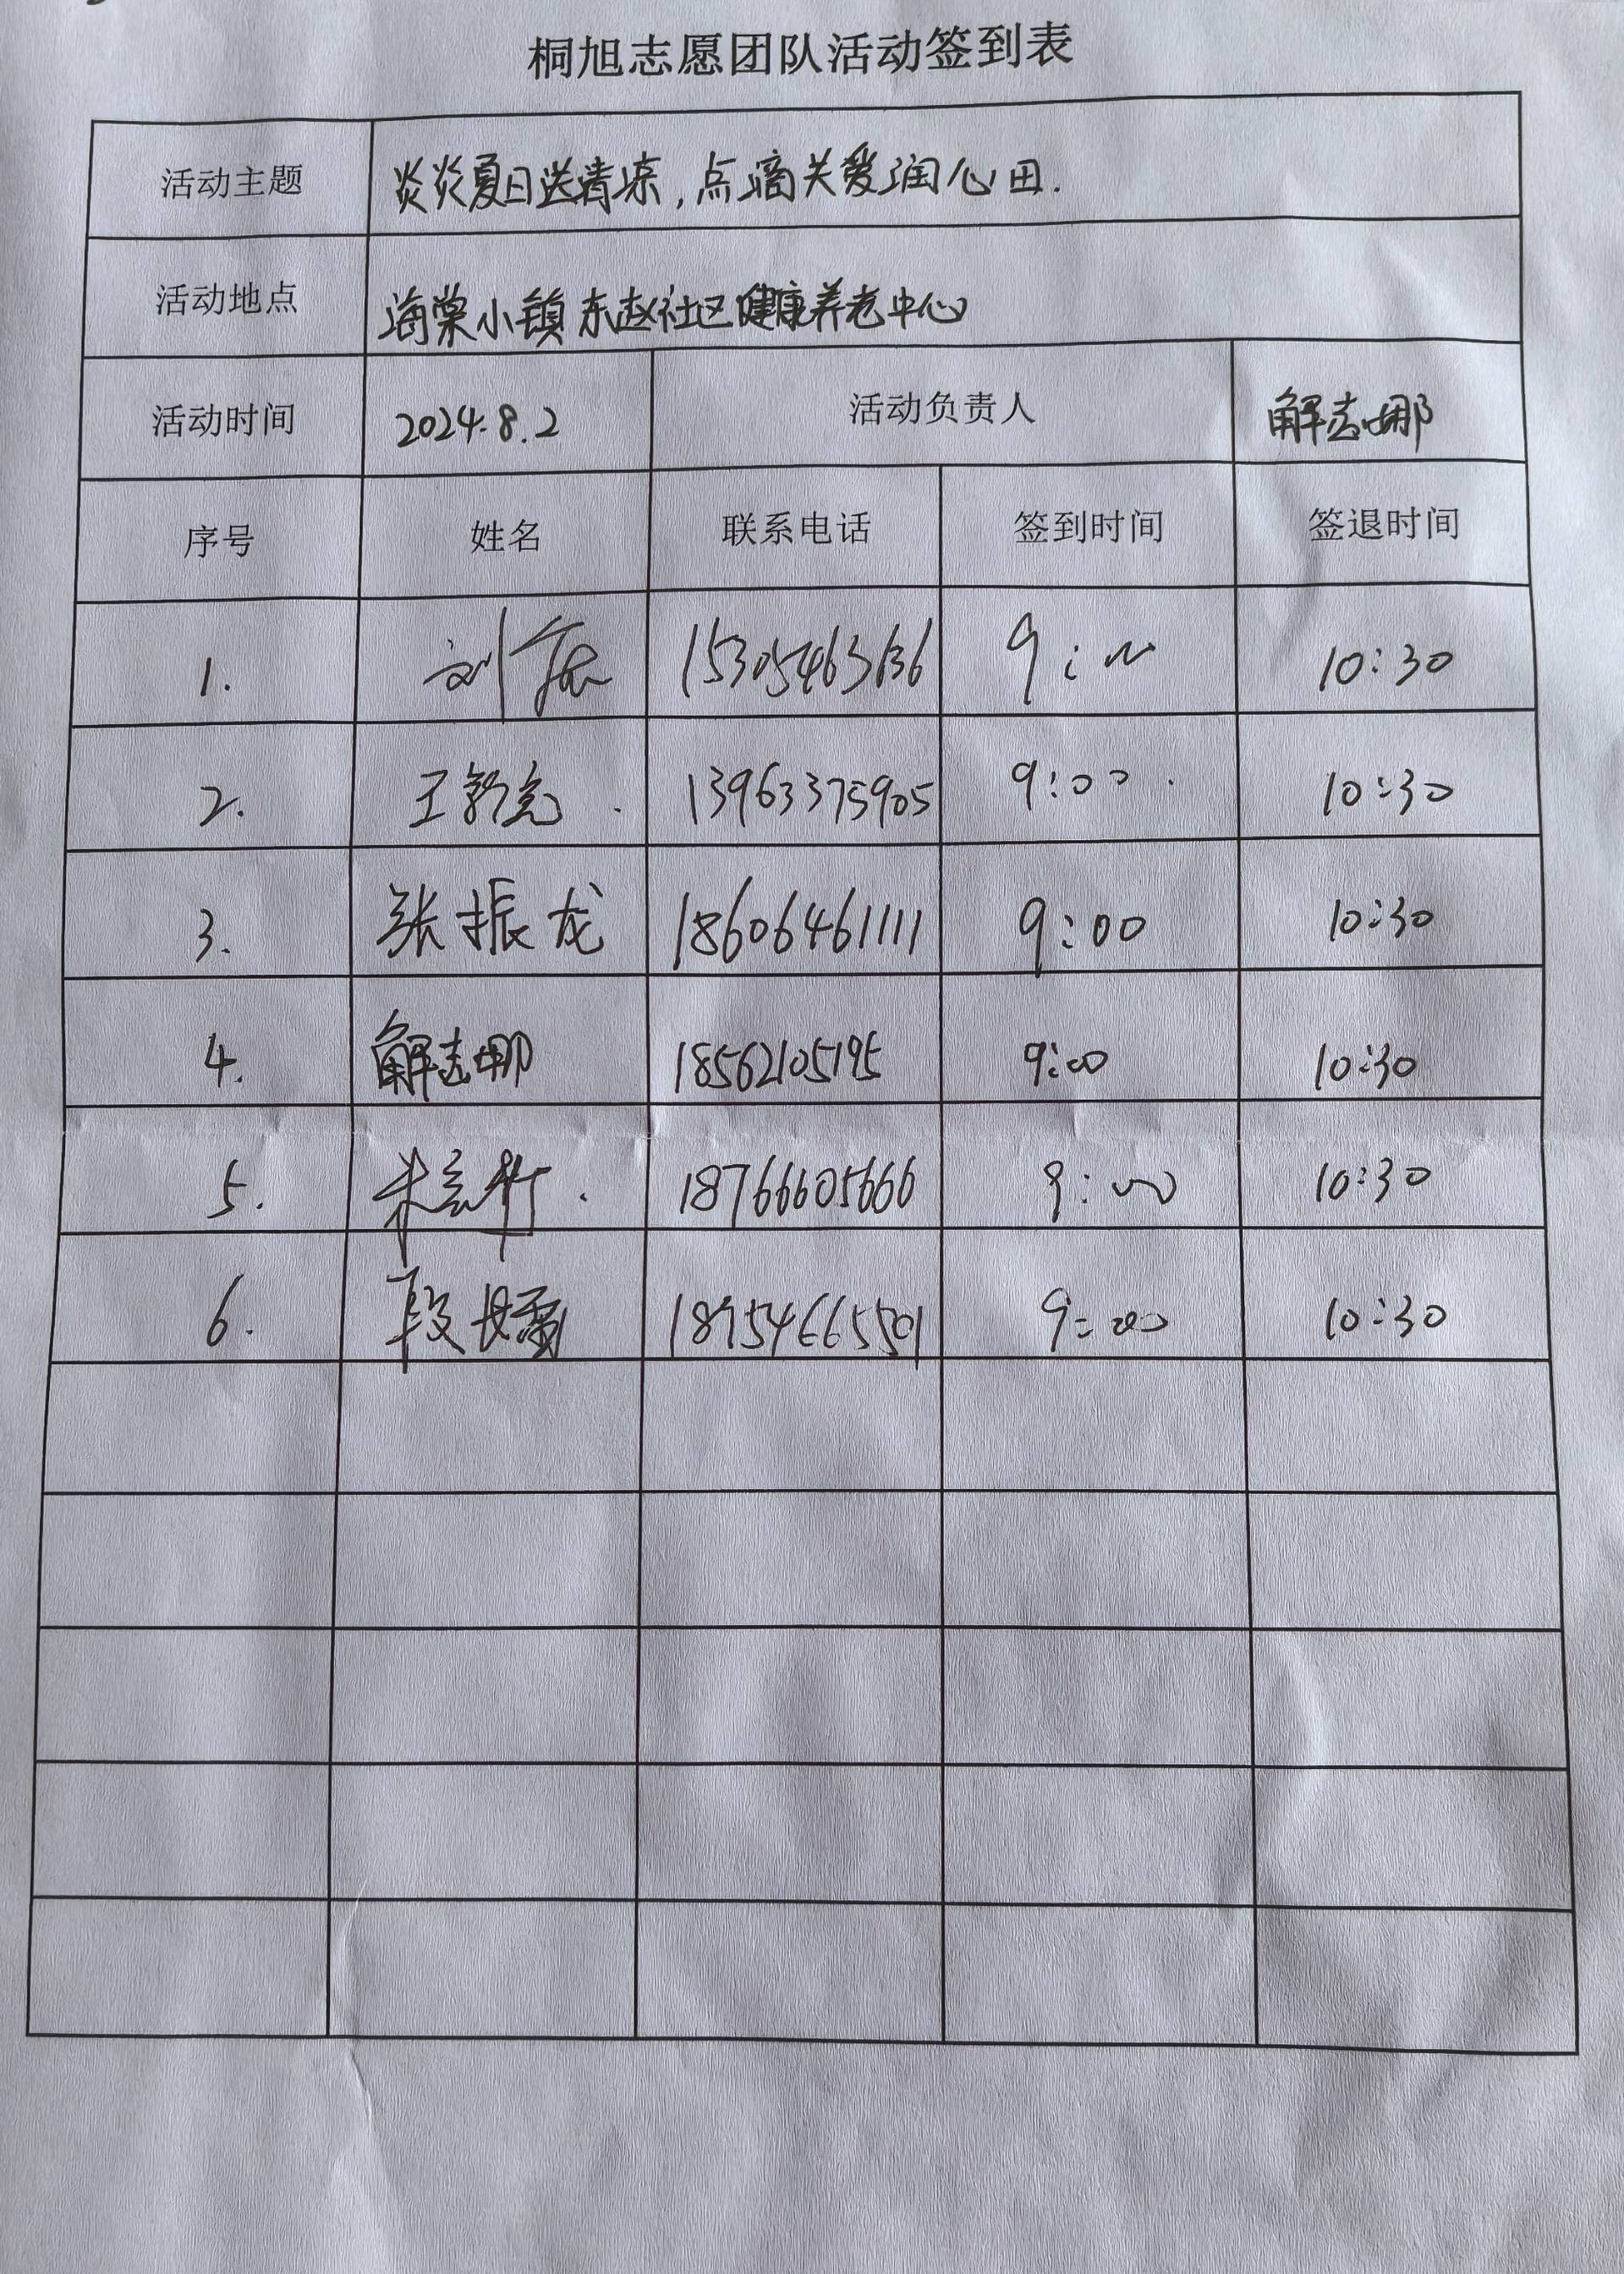 桐旭志愿团队活动签到表
活动主题 炎炎夏日送清凉,点滴关爱润心田.
活动地点 海棠小镇东赵社区健康养老中心
活动时间 2024.8.2 活动负责人 解志娜
序号 姓名 联系电话 签到时间 签退时间
1. 刘 15305463636 9:00 10:30
2. 王 13963375905 9:00 10:30
3. 张振龙 18606461111 9:00 10:30
4. 解志娜 18562105195 9:00 10:30
5. 18766605666 9:00 10:30
6. 段 18954665501 9:00 10:30